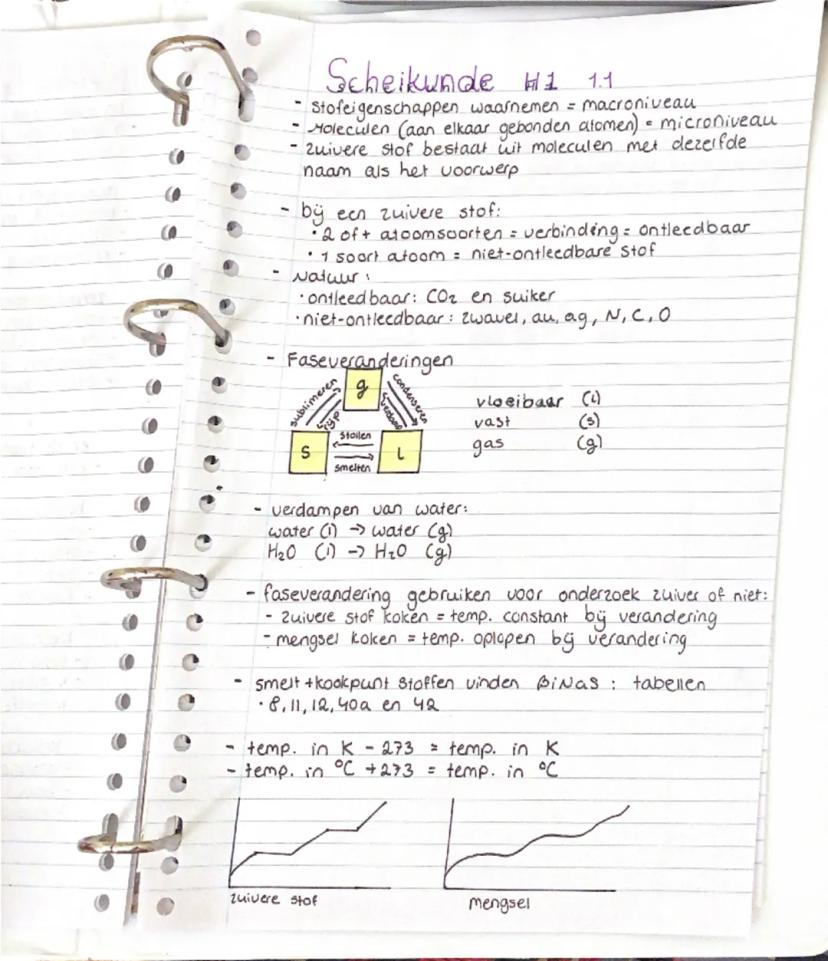 Scheikunde H1 1.1
- stofeigenschappen waarnemen = macroniveau
- Moleculen (aan elkaar gebonden atomen) = microniveau
- zuivere stof bestaat uit moleculen met dezelfde
naam als het voorwerp
- bij een zuivere stof:
• 2 of + atoomsoorten = verbinding = ontleedbaar
• 1 soort atoom = niet-ontleedbare stof
- Natuur:
• ontleedbaar: CO2 en suiker
• niet-ontleedbaar: zwavel, au, ag, N, C, O
- Faseveranderingen
g
sublimeren
rijp
condenseren
verdampen
s
stollen
smelten
l
vloeibaar (l)
vast (s)
gas (g)
- verdampen van water:
water (l) -> water (g)
H2O (l) -> H2O (g)
- faseverandering gebruiken voor onderzoek zuiver of niet:
- zuivere stof koken = temp. constant bij verandering
- mengsel koken = temp. oplopen bij verandering
- smelt + kookpunt stoffen vinden BiNaS : tabellen
• 8, 11, 12, 40a en 42
- temp. in K - 273 = temp. in K
- temp. in °C + 273 = temp. in °C
zuivere stof
mengsel